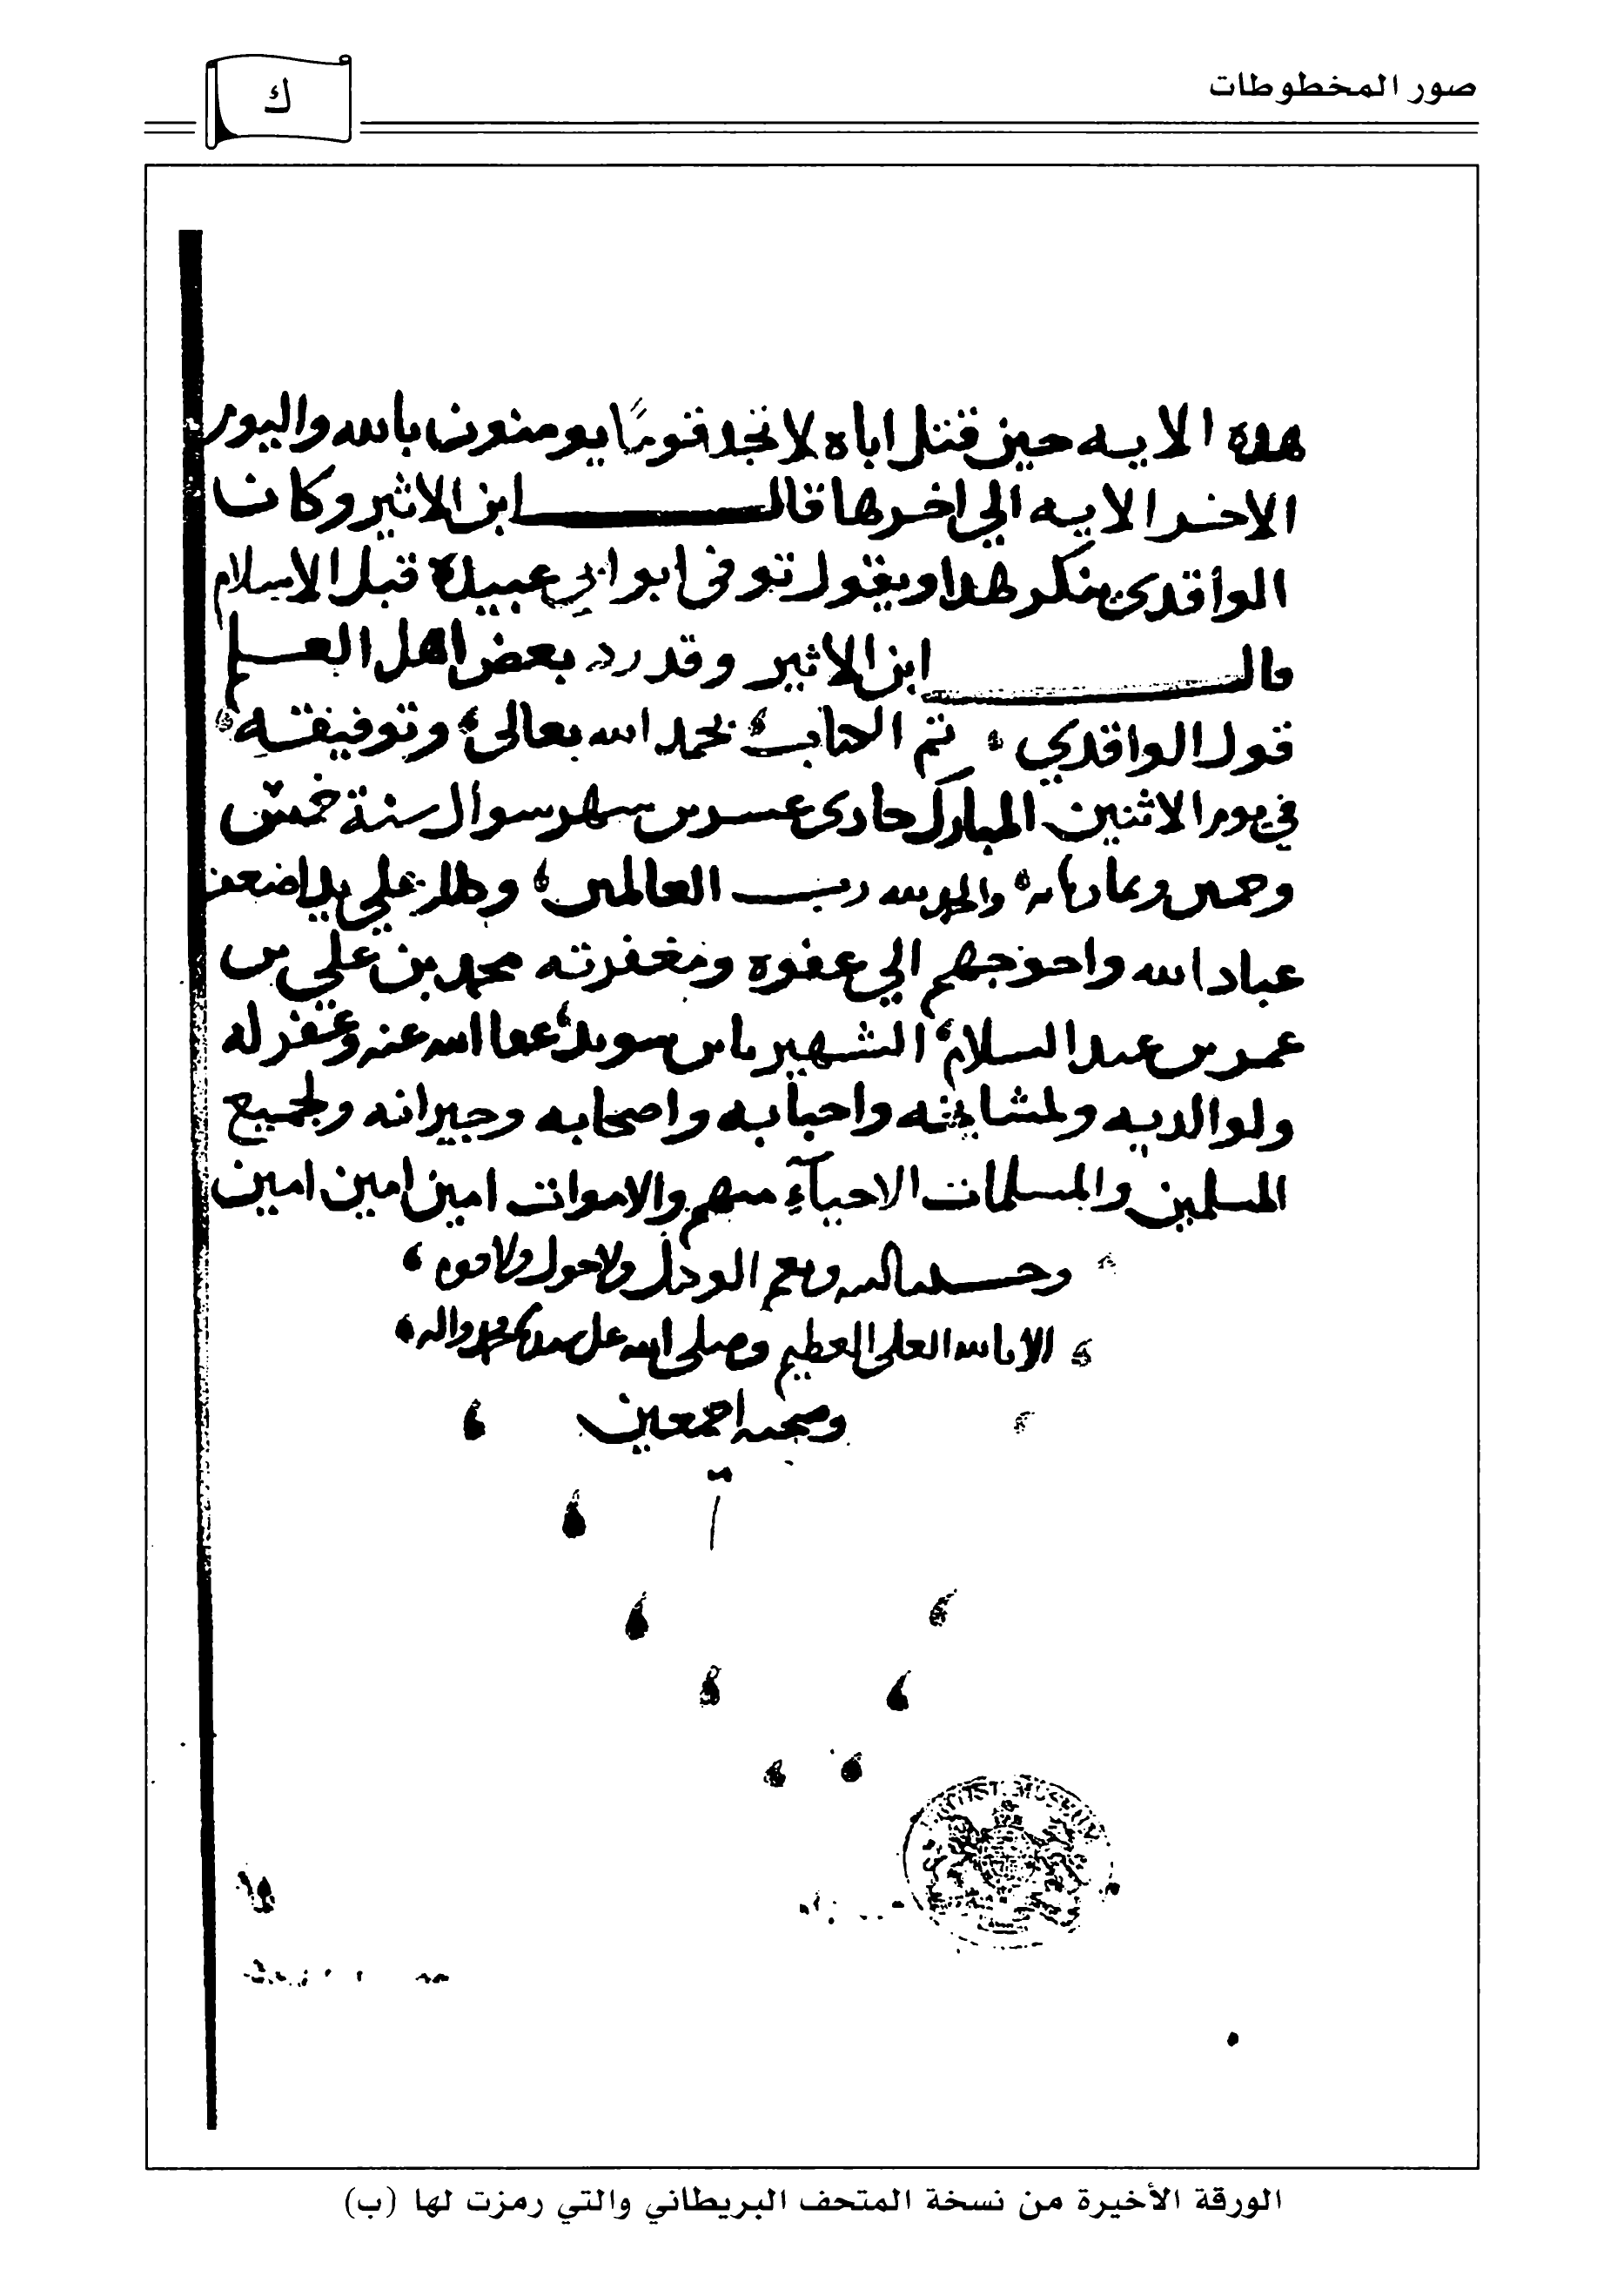 صور المخطوطات
ك
هده الايه حين قتل اباه لا تجد قومًا يومنون بالله واليوم
الاخر الايه الي اخرها قال ابن الاثير وكان
الواقدي ينكر هدا ويقول توفي ابو ابي عبيدة قبل الاسلام
قال ابن الاثير وقد رد بعض اهل العلم
قول الواقدي تم الكتاب بحمد الله تعالى وتوفيقه
في يوم الاثنين المبارك حادي عشر من شهر شوال سنة خمس
وخمسين وثمانمايه والحمد لله رب العالمين وذلك علي يد اضعف
عباد الله واحوجهم الي عفوه ومغفرته محمد بن علي بن
عمر بن عبد السلام الشهير بابن سويد عفا الله عنه وغفر له
ولوالديه ولمشايخه واحبابه واصحابه وجيرانه ولجميع
المسلمين والمسلمات الاحيآء منهم والاموات امين امين امين
وحسبنا الله ونعم الوكيل ولا حول ولا قوه
الا بالله العلي العظيم وصلى الله على سيدنا محمد واله
وصحبه اجمعين
BRITISH MUSEUM
الورقة الأخيرة من نسخة المتحف البريطاني والتي رمزت لها (ب)